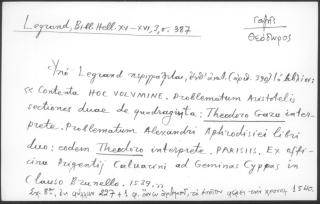 Legrand, Bibl. Hell. XV–XVI, 3, σ. 387
Γαζῆς
Θεόδωρος
Ὑπὸ Legrand περιγράφεται,
« Contenta HOC VOLVMINE. Problematum Aristotelis
sectiones duae de quadraginta: Theodoro Gaza inter-
prete. Problematum Alexandri Aphrodisiei libri
duo: eodem Theodoro interprete. PARISIIS. Ex offi-
cina Gigentij Caluarini ad Geminas Cyppas in
Clauso Brunello. 1539.»
Εἰς 8°, ἐκ φύλλων 227 + 1 φ. ἄνευ ἀριθμοῦ, τὸ ὁποῖον φέρει 1540.